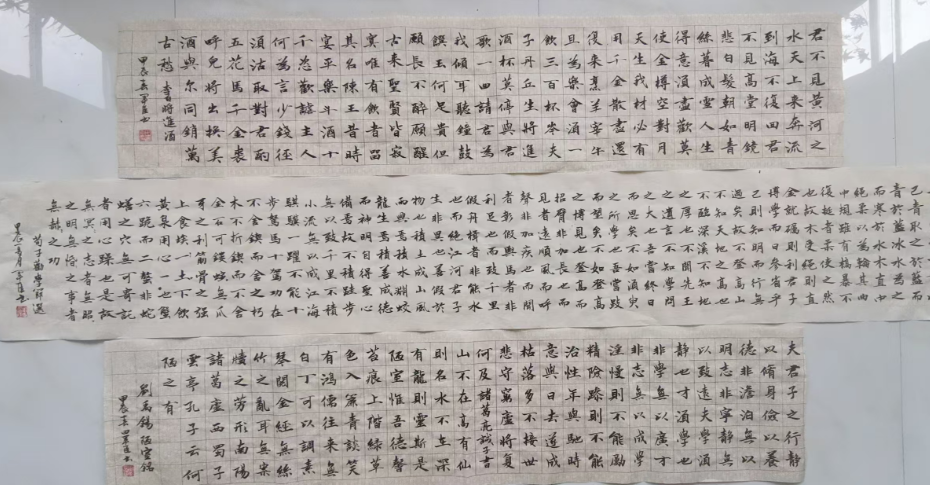 君不見黃河之
水天上来奔流
到海不復回君
不見高堂明鏡
悲白髮朝如青
絲暮成雪人生
得意須盡歡莫
使金樽空對月
天生我材必有
用千金散盡還
復来烹羊宰牛
且為樂會須一
飲三百杯岑夫
子丹丘生將進
酒杯莫停與君
歌一曲請君為
我傾耳聽鐘鼓
饌玉何足貴但
願長不醉願醒
古来聖賢皆寂
寞唯有飲者留
其名陳王昔時
宴平樂斗酒十
千恣歡謔主人
何為言少錢徑
須沽取對君酌
五花馬千金裘
呼兒將出換美
酒與尔同銷萬
古愁
李白將進酒
甲辰春
青取之於藍而
青於藍冰水為之
而寒於水木直中
繩輮以為輪其曲
中規雖有槁暴不
復挺者輮使之然
也故木受繩則直
金就礪則利君子
博學而日參省乎
己則知明而行無
過矣故不登高山
不知天之高也
不臨深溪不知地
之厚也不聞先王
之遺言不知學問
之大也吾嘗終日
而思矣不如須臾
之所學也吾嘗跂
而望矣不如登高
之博見也登高而
招臂非加長也而
見者遠順風而呼
聲非加疾也而聞
者彰假輿馬者非
利足也而致千里
假舟楫者非能水
也而絕江河君子
生非異也善假於
物也積土成山風
雨興焉積水成淵蛟
龍生焉積善成德
而神明自得聖心
備焉故不積跬步
無以至千里不積
小流無以成江海
騏驥一躍不能十
步駑馬十駕功在
不舍鍥而舍之朽
木不折鍥而不舍
金石可鏤螾無爪
牙之利筋骨之強
上食埃土下飲
黃泉用心一也蟹
六跪而二螯非蛇
蟺之穴無可寄託
者用心躁也是故
無冥冥之志者無昭
昭之明無惛惛之事者
無赫赫之功
荀子勸學節選
夫君子之行靜
以脩身儉以養
德非澹泊無以
明志非寧靜無
以致遠夫學須
靜也才須學也
非學無以廣才
非志無以成學
淫慢則不能勵
精險躁則不能
治性年與馳時
意與日去遂成
枯落多不接世
悲守窮廬將復
何及 諸葛亮誡子書
山不在高有仙
則名水不在深
有龍則靈斯是
陋室惟吾德馨
苔痕上階綠草
色入簾青談笑
有鴻儒往来無
白丁可以調素
琴閱金經無絲
竹之亂耳無案
牘之勞形南陽
諸葛廬西蜀子
雲亭孔子云何
陋之有
劉禹錫陋室銘
甲辰春